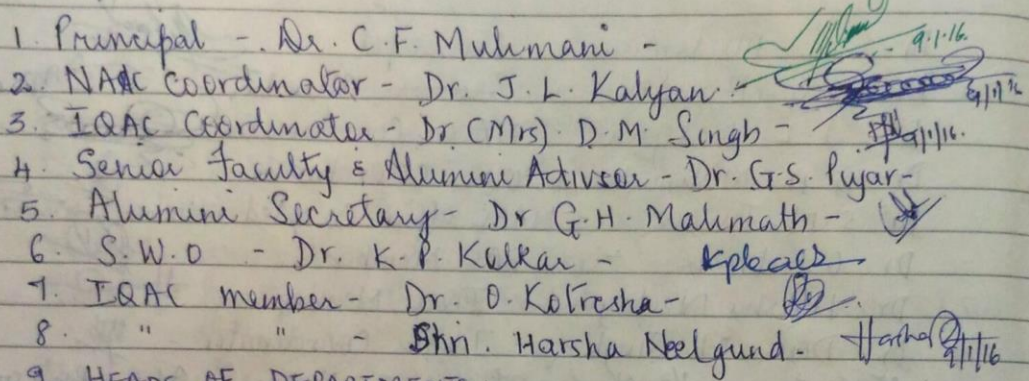 1. Principal - Dr. C. F. Mulimani - 9.1.16.
2. NAAC Coordinator - Dr. J. L. Kalyan - 9/1/16
3. IQAC Coordinator - Dr (Mrs). D. M. Singh - 9/1/16.
4. Senior Faculty & Alumuni Adivsor - Dr. G.S. Pujar -
5. Alumini Secretary - Dr G.H. Malimath -
6. S.W.O - Dr. K. P. -
7. IQAC member - Dr. O. Kotresha -
8. " " - Shri. Harsha Neelgund - Harsha 9/1/16
9 HEADS OF DEPARTMENTS